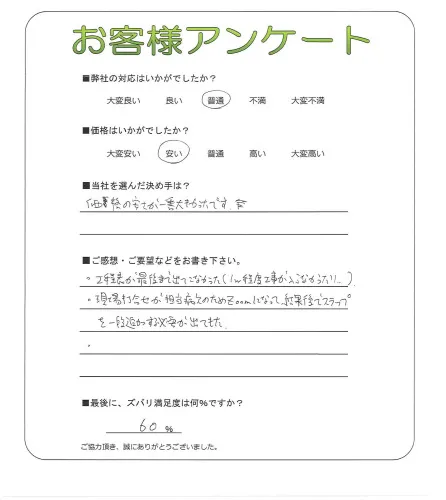 お客様アンケート
■弊社の対応はいかがでしたか?
大変良い 良い 普通 不満 大変不満
■価格はいかがでしたか?
大変安い 安い 普通 高い 大変高い
■当社を選んだ決め手は?
価格の安さが一番大きかったです。
■ご感想・ご要望などをお書き下さい。
・工程表が最後まで出てこなかった(1w程度工事が入らなかったり…)
・現場打合せが担当病欠のためZoomになって、結果後でスラップ
を一段追加する必要が出てきた。
・
■最後に、ズバリ満足度は何%ですか?
60 %
ご協力頂き、誠にありがとうございました。